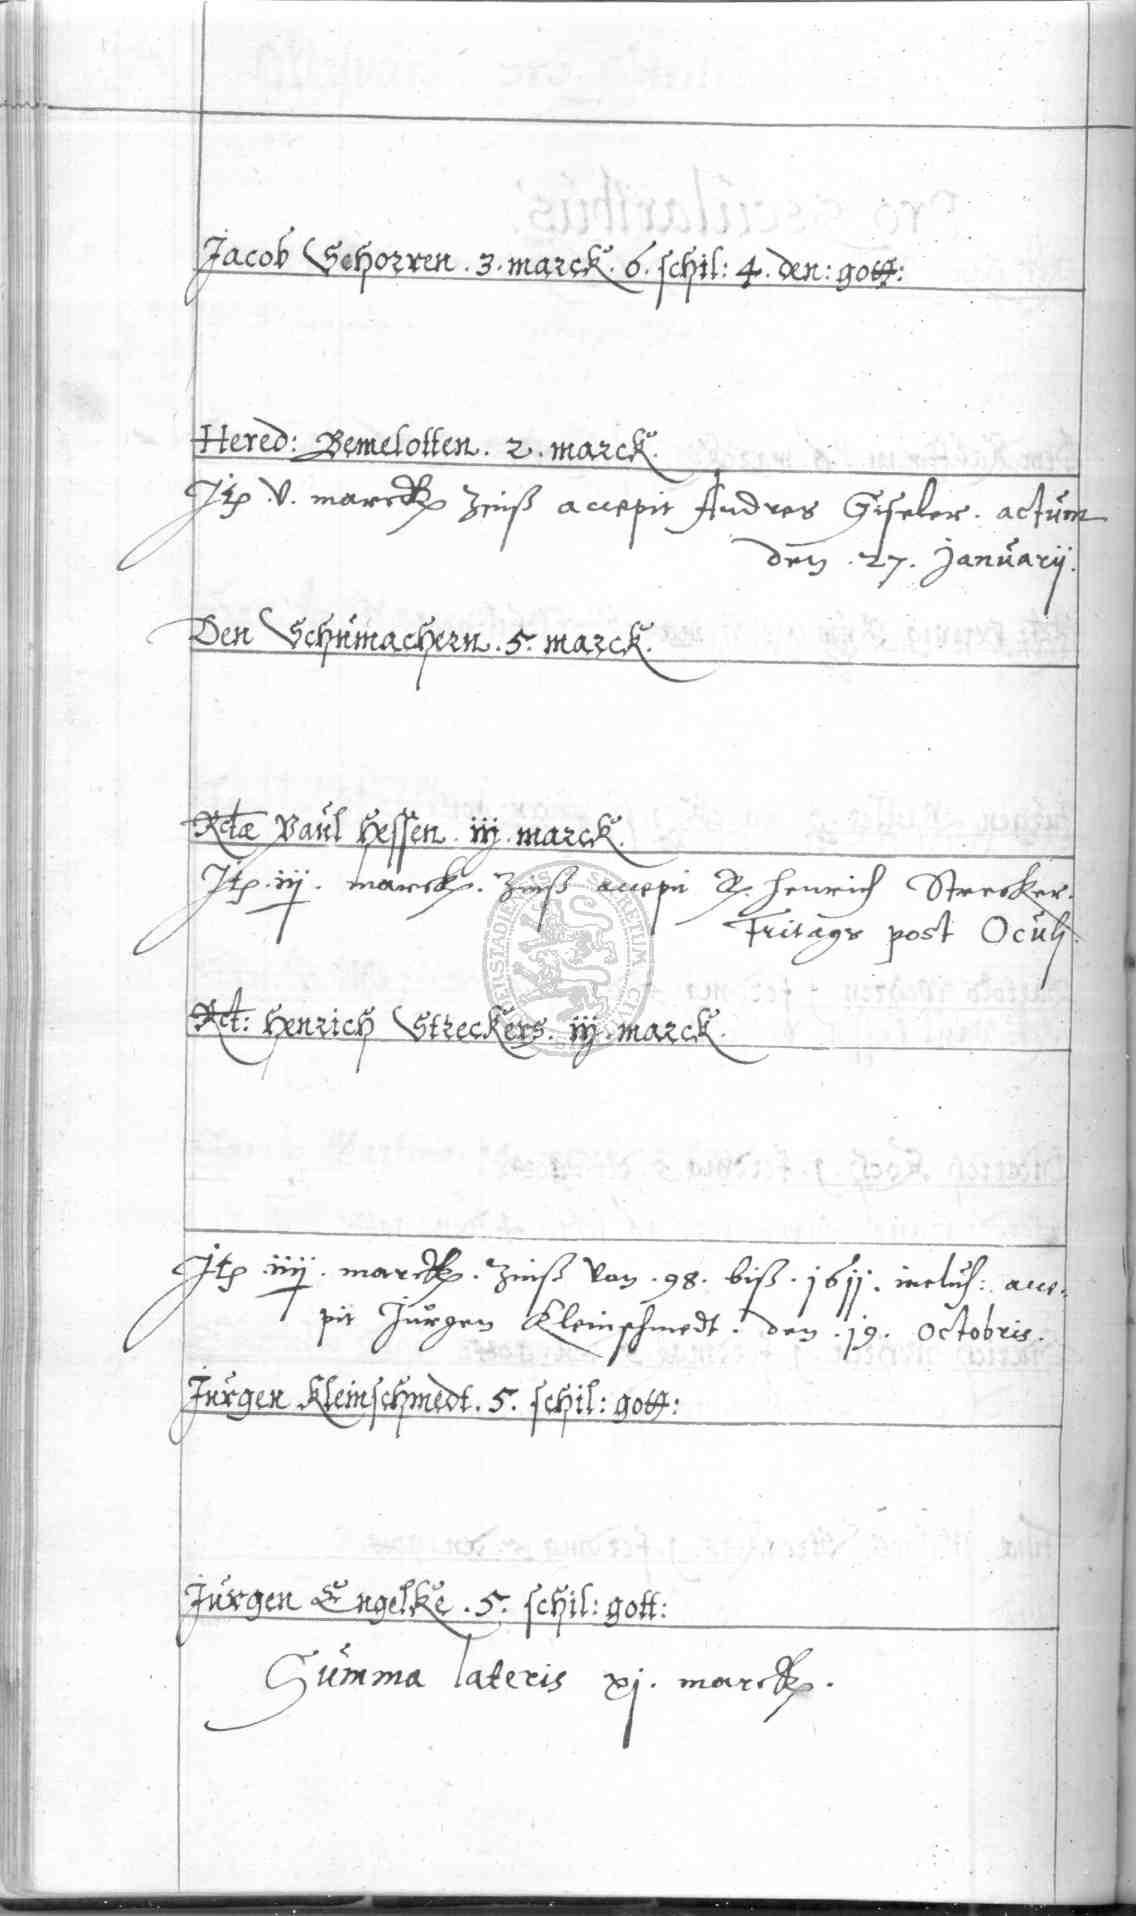 Jacob Schorren . 3 . marck . 6 . schil: 4 . den: gott:
Hered: Bemelotten . 2 . marck.
Itp . v . marck Zinß accepit Andres Giseler . actum
den . 27 . Januarij.
Den Schumachern . 5 . marck.
Rctæ Paul Hessen . iij . marck.
Itp . iij . marck . Zinß accepit R. Henrich Strecker.
Fritags post Oculi
Rct: Henrich Streckers . iij . marck.
Itp iiij . marck . Zinß von . 98 . biß . 1611 . inclus: acce-
pit Jurgen Kleinschmedt . den . 19 . Octobris.
Jurgen Kleinschmedt . 5 . schil: gott:
Jurgen Engelke . 5 . schil: gott:
Summa lateris xj . marck.